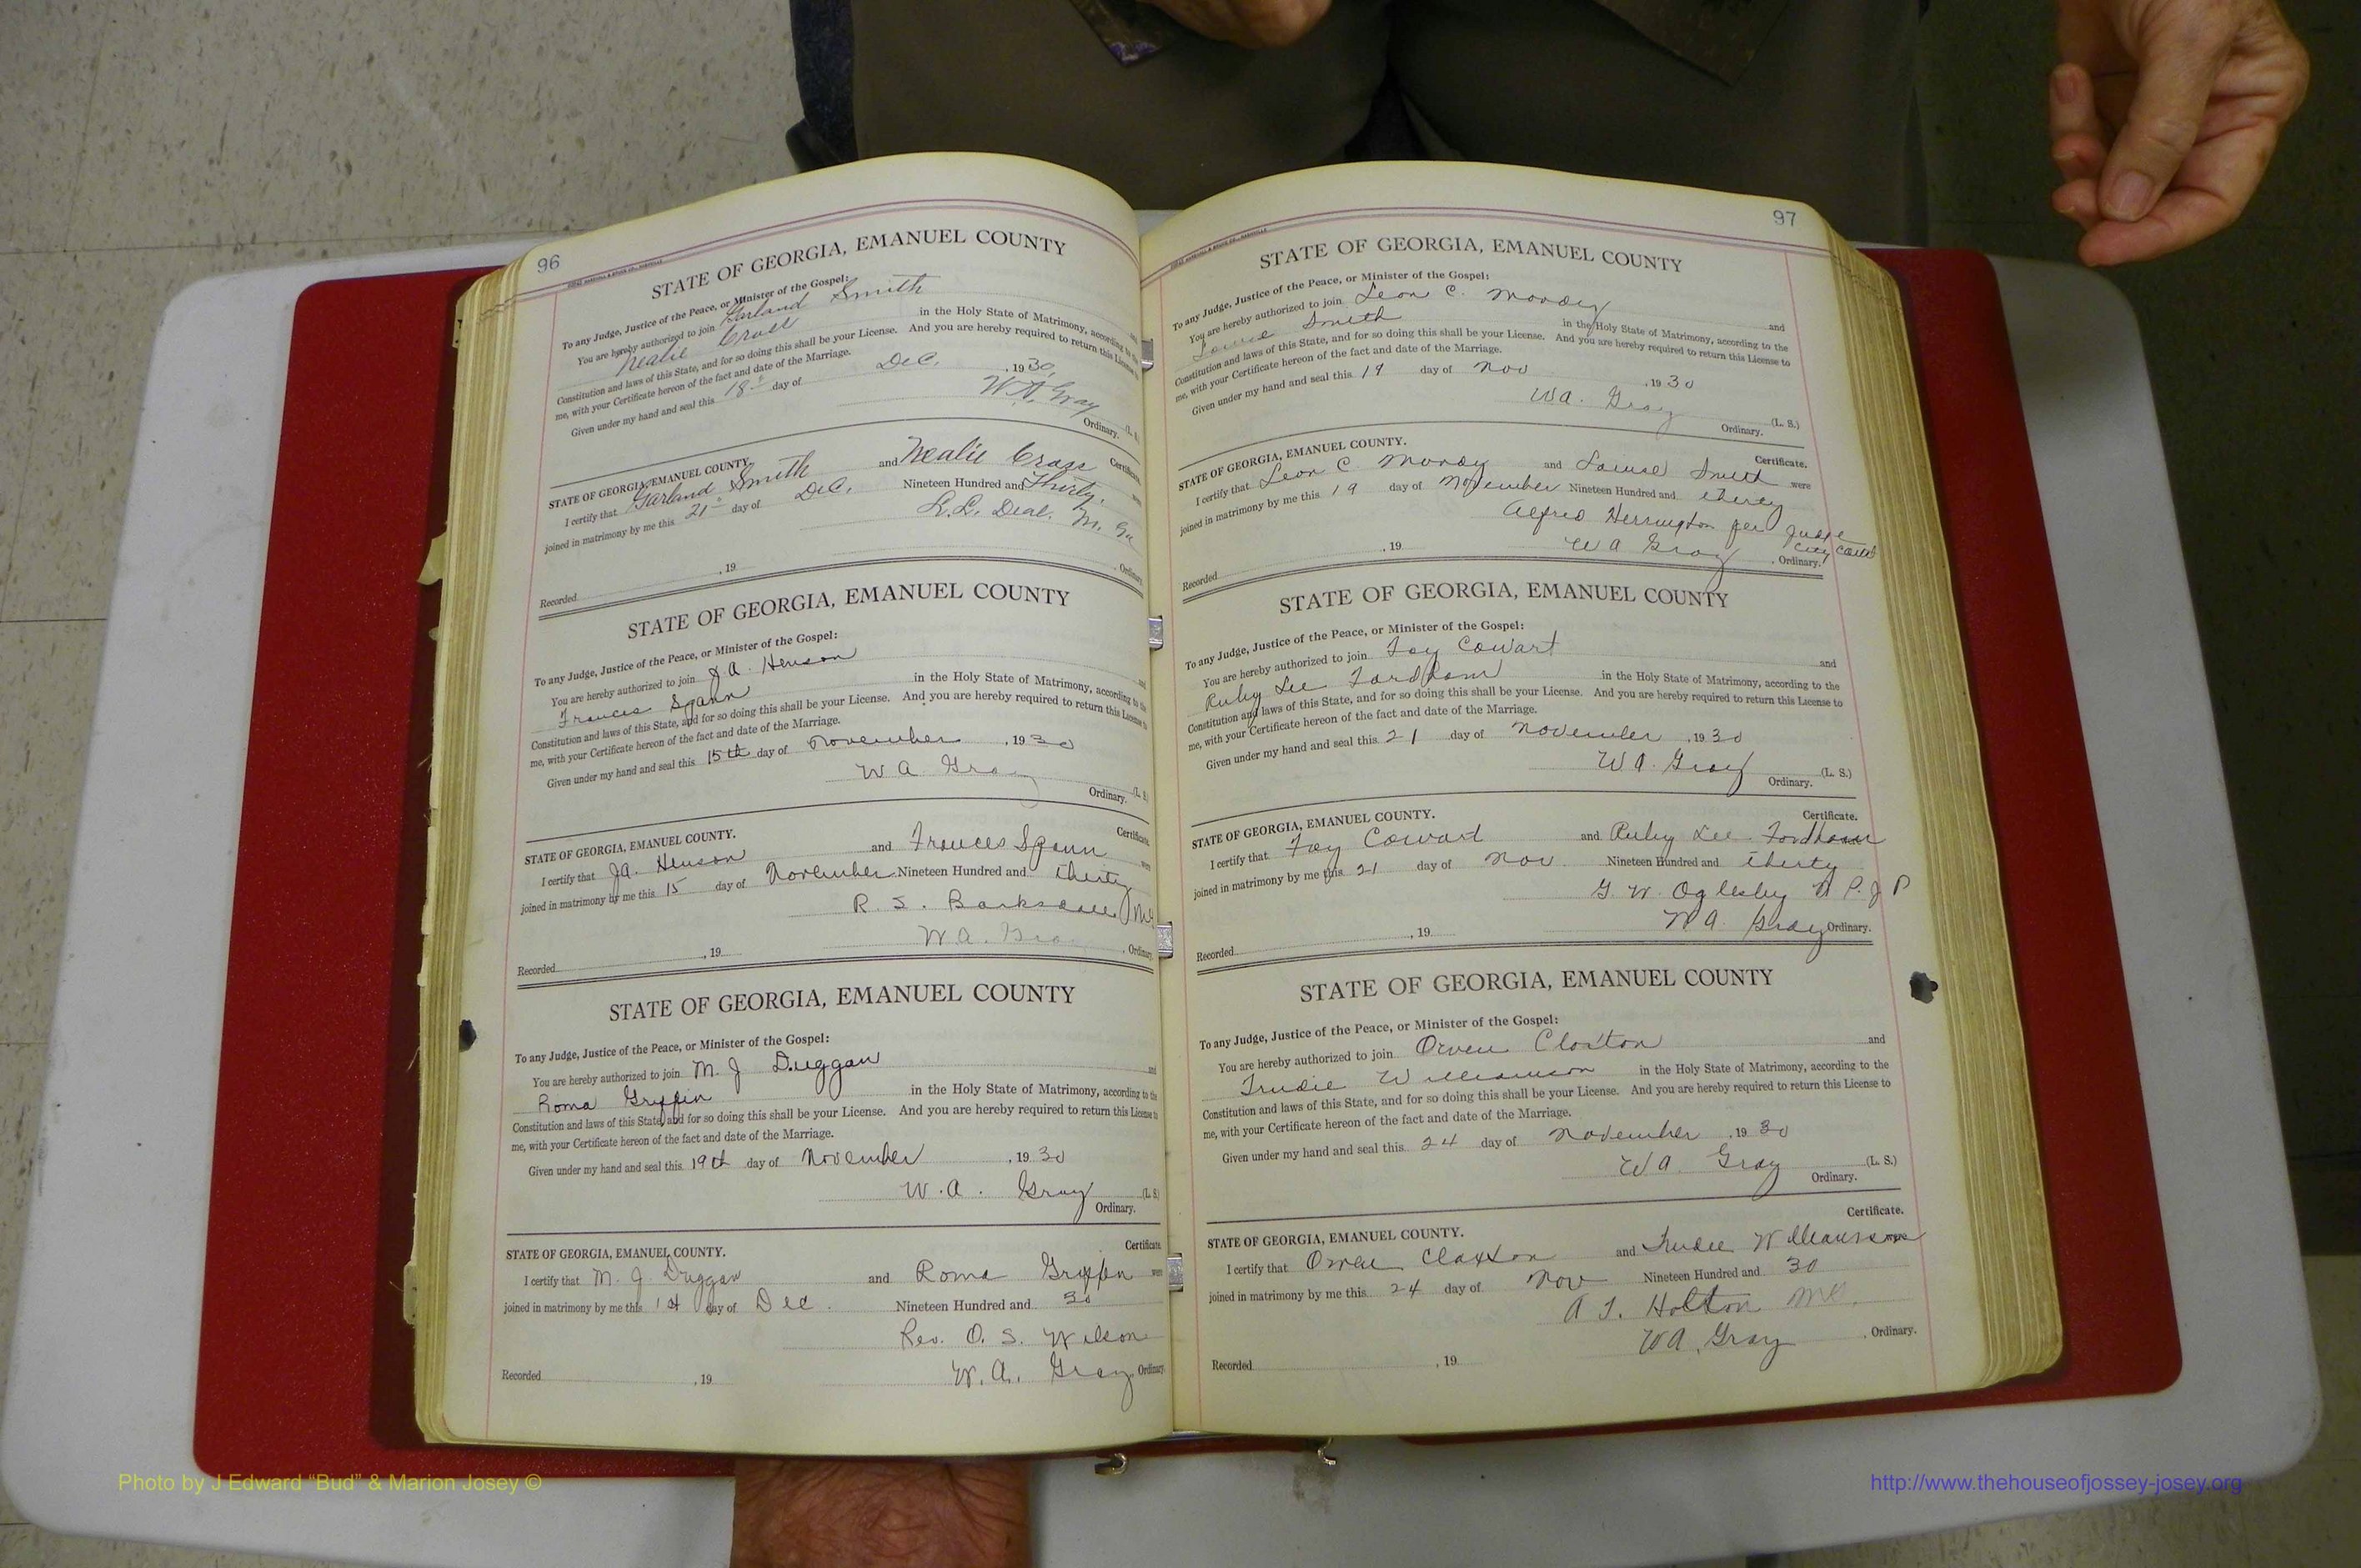 96
STATE OF GEORGIA, EMANUEL COUNTY
To any Judge, Justice of the Peace, or Minister of the Gospel:
You are hereby authorized to join Garland Smith and
Nealie Cross in the Holy State of Matrimony, according to the
Constitution and laws of this State, and for so doing this shall be your License. And you are hereby required to return this License
me, with your Certificate hereon of the fact and date of the Marriage.
Given under my hand and seal this 18th day of Dec. , 1930.
W.A. Gray (L. S.
Ordinary.
Certificate.
STATE OF GEORGIA, EMANUEL COUNTY.
I certify that Garland Smith and Nealie Cross were
joined in matrimony by me this 21st day of Dec. Nineteen Hundred and Thirty.
L.L. Deal. M. G.
Recorded , 19 , Ordinary
STATE OF GEORGIA, EMANUEL COUNTY
To any Judge, Justice of the Peace, or Minister of the Gospel:
You are hereby authorized to join J.A. Henson and
Frances Spann in the Holy State of Matrimony, according to the
Constitution and laws of this State, and for so doing this shall be your License. And you are hereby required to return this License to
me, with your Certificate hereon of the fact and date of the Marriage.
Given under my hand and seal this 15th day of November , 1930
W A Gray (L. S
Ordinary.
Certificate.
STATE OF GEORGIA, EMANUEL COUNTY.
I certify that J.A. Henson and Frances Spann were
joined in matrimony by me this 15 day of November Nineteen Hundred and thirty
R. S. Barksdale, MG
W.A. Gray , Ordinary
Recorded , 19
STATE OF GEORGIA, EMANUEL COUNTY
To any Judge, Justice of the Peace, or Minister of the Gospel:
You are hereby authorized to join M. J Duggan and
Roma Griffin in the Holy State of Matrimony, according to the
Constitution and laws of this State, and for so doing this shall be your License. And you are hereby required to return this License to
me, with your Certificate hereon of the fact and date of the Marriage.
Given under my hand and seal this 19th day of November , 1930
W. A. Gray (L. S.)
Ordinary.
Certificate
STATE OF GEORGIA, EMANUEL COUNTY.
I certify that M. J. Duggan and Roma Griffin were
joined in matrimony by me this 1st day of Dec. Nineteen Hundred and 30
Rev. O. S. Wilson
Recorded , 19 W. A. Gray Ordinary
97
STATE OF GEORGIA, EMANUEL COUNTY
To any Judge, Justice of the Peace, or Minister of the Gospel:
You are hereby authorized to join Leon C. Moody and
Louise Smith in the Holy State of Matrimony, according to the
Constitution and laws of this State, and for so doing this shall be your License. And you are hereby required to return this License to
me, with your Certificate hereon of the fact and date of the Marriage.
Given under my hand and seal this 19 day of Nov , 1930
W A. Gray (L. S.)
Ordinary.
Certificate.
STATE OF GEORGIA, EMANUEL COUNTY.
I certify that Leon C. Moody and Louise Smith were
joined in matrimony by me this 19 day of November Nineteen Hundred and thirty
Alfred Herrington Judge
City Court
W A Gray , Ordinary.
Recorded , 19
STATE OF GEORGIA, EMANUEL COUNTY
To any Judge, Justice of the Peace, or Minister of the Gospel:
You are hereby authorized to join Foy Cowart and
Ruby Lee Fordham in the Holy State of Matrimony, according to the
Constitution and laws of this State, and for so doing this shall be your License. And you are hereby required to return this License to
me, with your Certificate hereon of the fact and date of the Marriage.
Given under my hand and seal this 21 day of November , 1930
W A. Gray (L. S.)
Ordinary.
Certificate.
STATE OF GEORGIA, EMANUEL COUNTY.
I certify that Foy Cowart and Ruby Lee Fordham
joined in matrimony by me this 21 day of Nov Nineteen Hundred and thirty
G. W. Oglesby N P. J P
W A. Gray Ordinary.
Recorded , 19
STATE OF GEORGIA, EMANUEL COUNTY
To any Judge, Justice of the Peace, or Minister of the Gospel:
You are hereby authorized to join Orren Claxton and
Trudie Williamson in the Holy State of Matrimony, according to the
Constitution and laws of this State, and for so doing this shall be your License. And you are hereby required to return this License to
me, with your Certificate hereon of the fact and date of the Marriage.
Given under my hand and seal this 24 day of November , 1930
W A Gray (L. S.)
Ordinary.
Certificate.
STATE OF GEORGIA, EMANUEL COUNTY.
I certify that Orren Claxton and Trudie Williamson
joined in matrimony by me this 24 day of Nov Nineteen Hundred and 30
A J. Holton MG.
W A. Gray , Ordinary.
Recorded , 19
Photo by J Edward “Bud” & Marion Josey ©
http://www.thehouseofjossey-josey.org